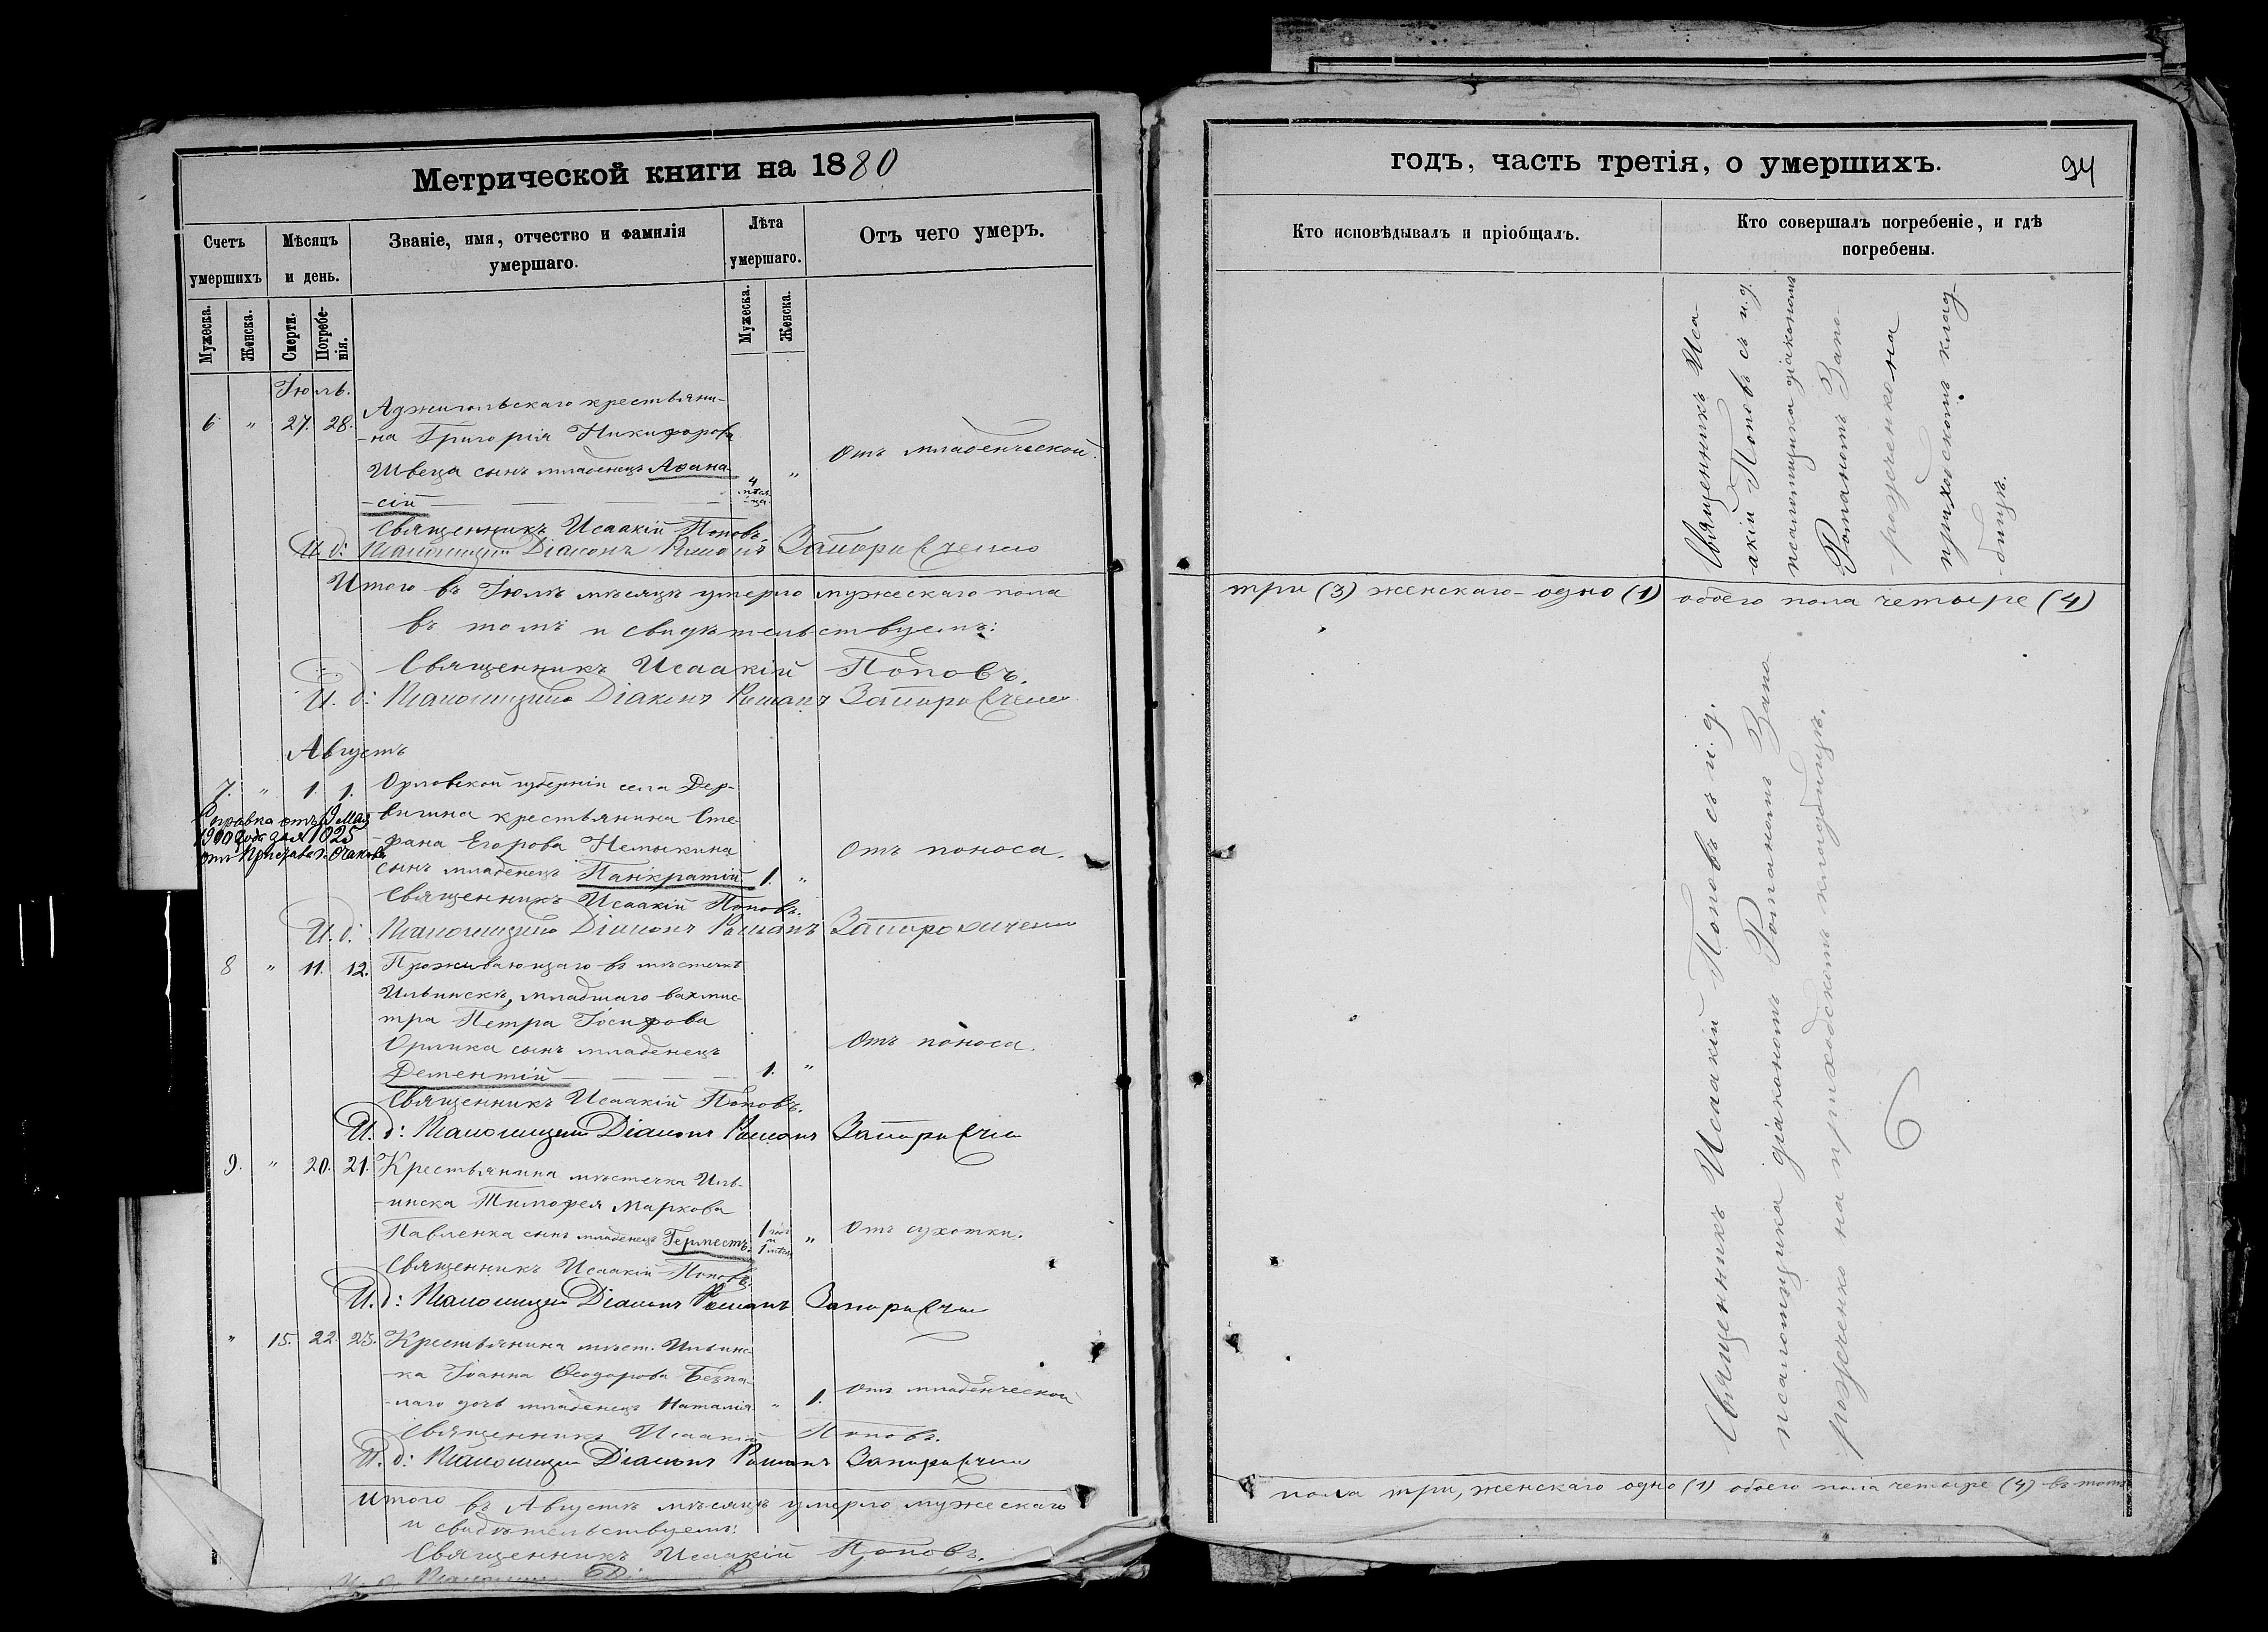 Метрической книги на 1880
Счетъ умершихъ
Мѣсяцъ и день.
Званіе, имя, отчество и фамилія умершаго.
Лѣта умершаго.
Отъ чего умеръ.
Мужеска.
Женска.
Смерти.
Погребе-
нія.
Мужеска.
Женска.
Іюль.
6 " 27. 28. Аджигольскаго крестьяни-
-на Григорія Никифорова
Швеца сынъ младенецъ Аѳана-
-сій 4 мѣся-
-ца " Отъ младенческой.
Священникъ Исаакій Поповъ.
И. д: Псаломщика Діаконъ Романъ Запорожченко
Итого въ Іюлѣ мѣсяцѣ умерло мужескаго пола
въ томъ и свидѣтельствуемъ:
Священникъ Исаакій Поповъ.
И. д: Псаломщика Діаконъ Романъ Запорожченко
Августъ
7. " 1. 1. Орловской губерніи села Дер-
вичина крестьянина Сте-
-фана Егорова
сынъ младенецъ Панкратій 1. " Отъ поноса.
Справка отъ 19 мая
1900 года за № 1025
Священникъ Исаакій Поповъ.
И. д: Псаломщика Діаконъ Романъ Запорожченко
8 " 11. 12. Проживающаго въ мѣстечкѣ
Ильинскѣ, младшаго вахмис-
тра Петра Іосифова
Орлика сынъ младенецъ
Дементій 1. " Отъ поноса.
Священникъ Исаакій Поповъ.
И. д: Псаломщика Діаконъ Романъ Запорожченко
9. " 20. 21. Крестьянина мѣстечка Иль-
-инска Тимофея Маркова
Павленка сынъ младенецъ Гермесъ. 1 годъ
и
1 мѣсяц " Отъ сухотки.
Священникъ Исаакій Поповъ.
И. д: Псаломщика Діаконъ Романъ Запорожченко
" 15. 22. 23. Крестьянина мѣст. Ильинс-
-ка Іоанна Ѳеодорова Безпа-
-лаго дочь младенецъ Наталія " 1. Отъ младенческой
Священникъ Исаакій Поповъ.
И. д: Псаломщика Діаконъ Романъ Запорожченко
Итого въ Августѣ мѣсяцѣ умерло мужескаго
и свидѣтельствуемъ:
Священникъ Исаакій Поповъ.
годъ, часть третія, о умершихъ.
94
Кто исповѣдывалъ и пріобщалъ.
Кто совершалъ погребеніе, и гдѣ
погребены.
Священникъ Иса-
-акій Поповъ съ и. д.
псаломщика діакономъ
Романомъ Запо-
-рожченко на
приходскомъ клад-
-бищѣ.
три (3) женскаго - одно (1) обоего пола четыре (4)
Священникъ Исаакій Поповъ съ и. д.
псаломщика діакономъ Романомъ Запо-
рожченко на приходскомъ кладбищѣ.
пола три, женскаго одно (1) обоего пола четыре (4) въ томъ